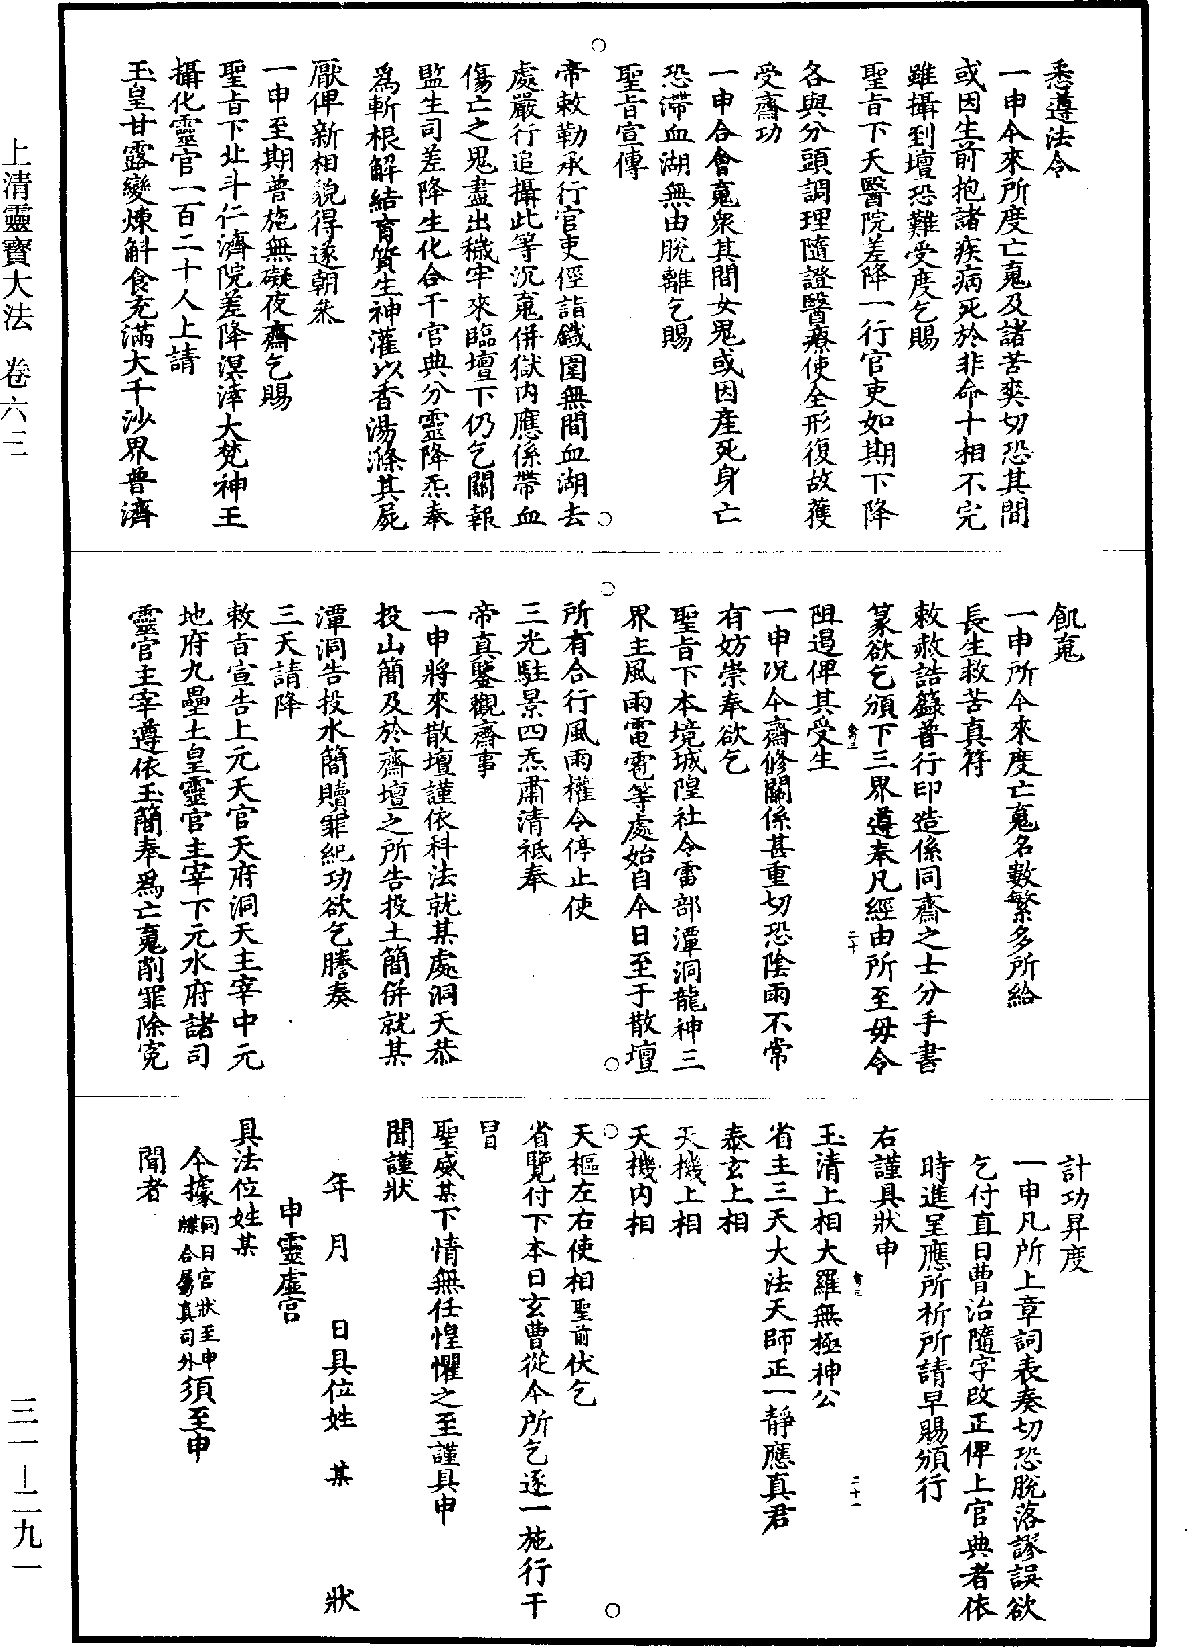 上清靈寶大法 卷六三
三一-二九一
悉遵法令
一申今來所度亡䰟及諸苦爽切恐其間
或因生前抱諸疾病死於非命十相不完
雖攝到壇恐難受度乞賜
聖旨下天醫院差降一行官吏如期下降
各與分頭調理隨證醫療使全形復故獲
受齋功
一申合會䰟衆其間女鬼或因産死身亡
恐滯血湖無由脫離乞賜
聖旨宣傳
帝敕勒承行官吏徑詣鐵圍無間血湖去
處嚴行追攝此等沉䰟併獄內應係帶血
傷亡之鬼盡出穢牢來臨壇下仍乞關報
監生司差降生化合千官典分靈降炁奉
爲斬根解結育質生神灌以香湯滌其屍
厭俾新相貌得遂朝叅
一申至期普施無礙夜齋乞賜
聖旨下北斗仁濟院差降溟涬大梵神王
攝化靈官一百二十人上請
玉皇甘露變煉斛食充滿大千沙界普濟
飢䰟
一申所今來度亡䰟名數繁多所給
長生救苦真符
敕赦誥籙普行印造係同齋之士分手書
篆欲乞頒下三界遵奉凡經由所至毋令
阻遏俾其受生
一申況今齋修關係甚重切恐陰雨不常
有妨崇奉欲乞
聖旨下本境城隍社令雷部潭洞龍神三
界主風雨電雹等處始自今日至于散壇
所有合行風雨權令停止使
三光駐景四炁肅清祗奉
帝真鑒觀齋事
一申將來散壇謹依科法就某處洞天恭
投山簡及於齋壇之所告投土簡併就某
潭洞告投水簡贖罪紀功欲乞謄奏
三天請降
敕旨宣告上元天官天府洞天主宰中元
地府九壘土皇靈官主宰下元水府諸司
靈官主宰遵依玉簡奉爲亡䰟削罪除寃
計功昇度
一申凡所上章詞表奏切恐脫落謬誤欲
乞付直日曹治隨字改正俾上官典者依
時進呈應所祈所請早賜頒行
右謹具狀申
玉清上相大羅無極神公
省主三天大法天師正一靜應真君
泰玄上相
天機上相
天機內相
天樞左右使相聖前伏乞
省覽付下本日玄曹從今所乞逐一施行干
冒
聖威某下情無任惶懼之至謹具申
聞謹狀
年 月 日具位姓 某 狀
申靈虛宮
具法位姓某
今據同日官狀至申牒合屬真司外須至申
聞者